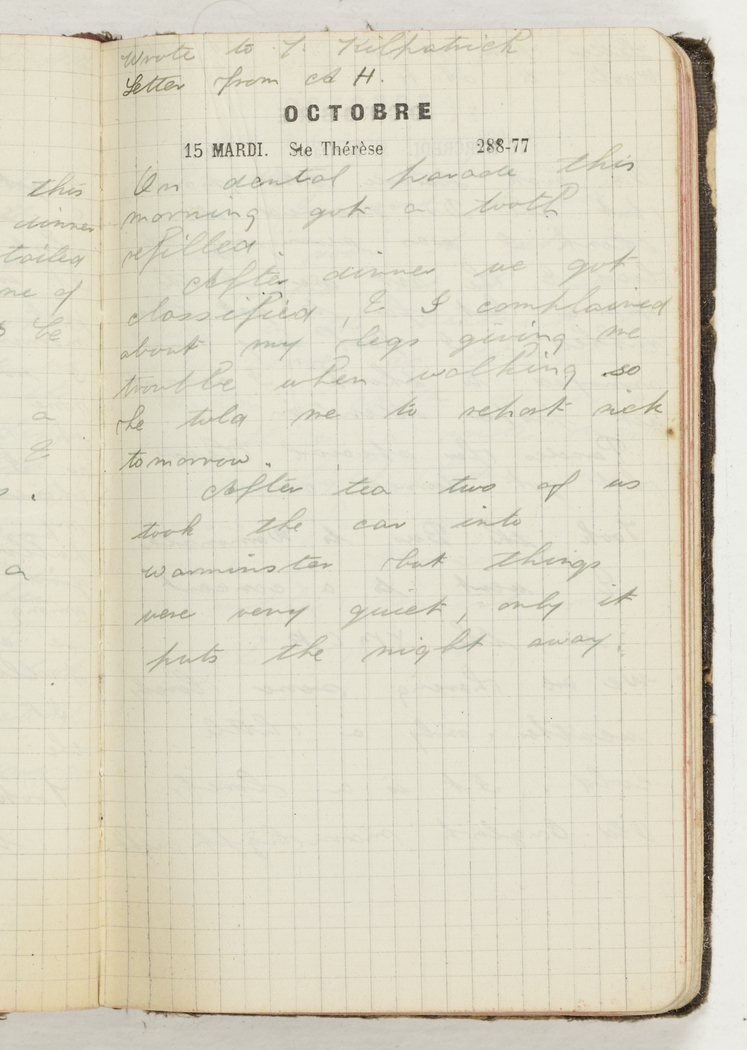 Wrote to J. Kilpatrick
Letter from A H.
OCTOBRE
15 MARDI. Ste Thérèse 288-77
On dental parade this
morning got a tooth
refilled
After dinner we got
classified, & I complained
about my legs giving me
trouble when walking so
he told me to report sick
tomorrow.
After tea two of us
took the car into
Warminster but things
were very quiet, only it
puts the night away.
this
dinner
tailed
me of
be
a
&
a